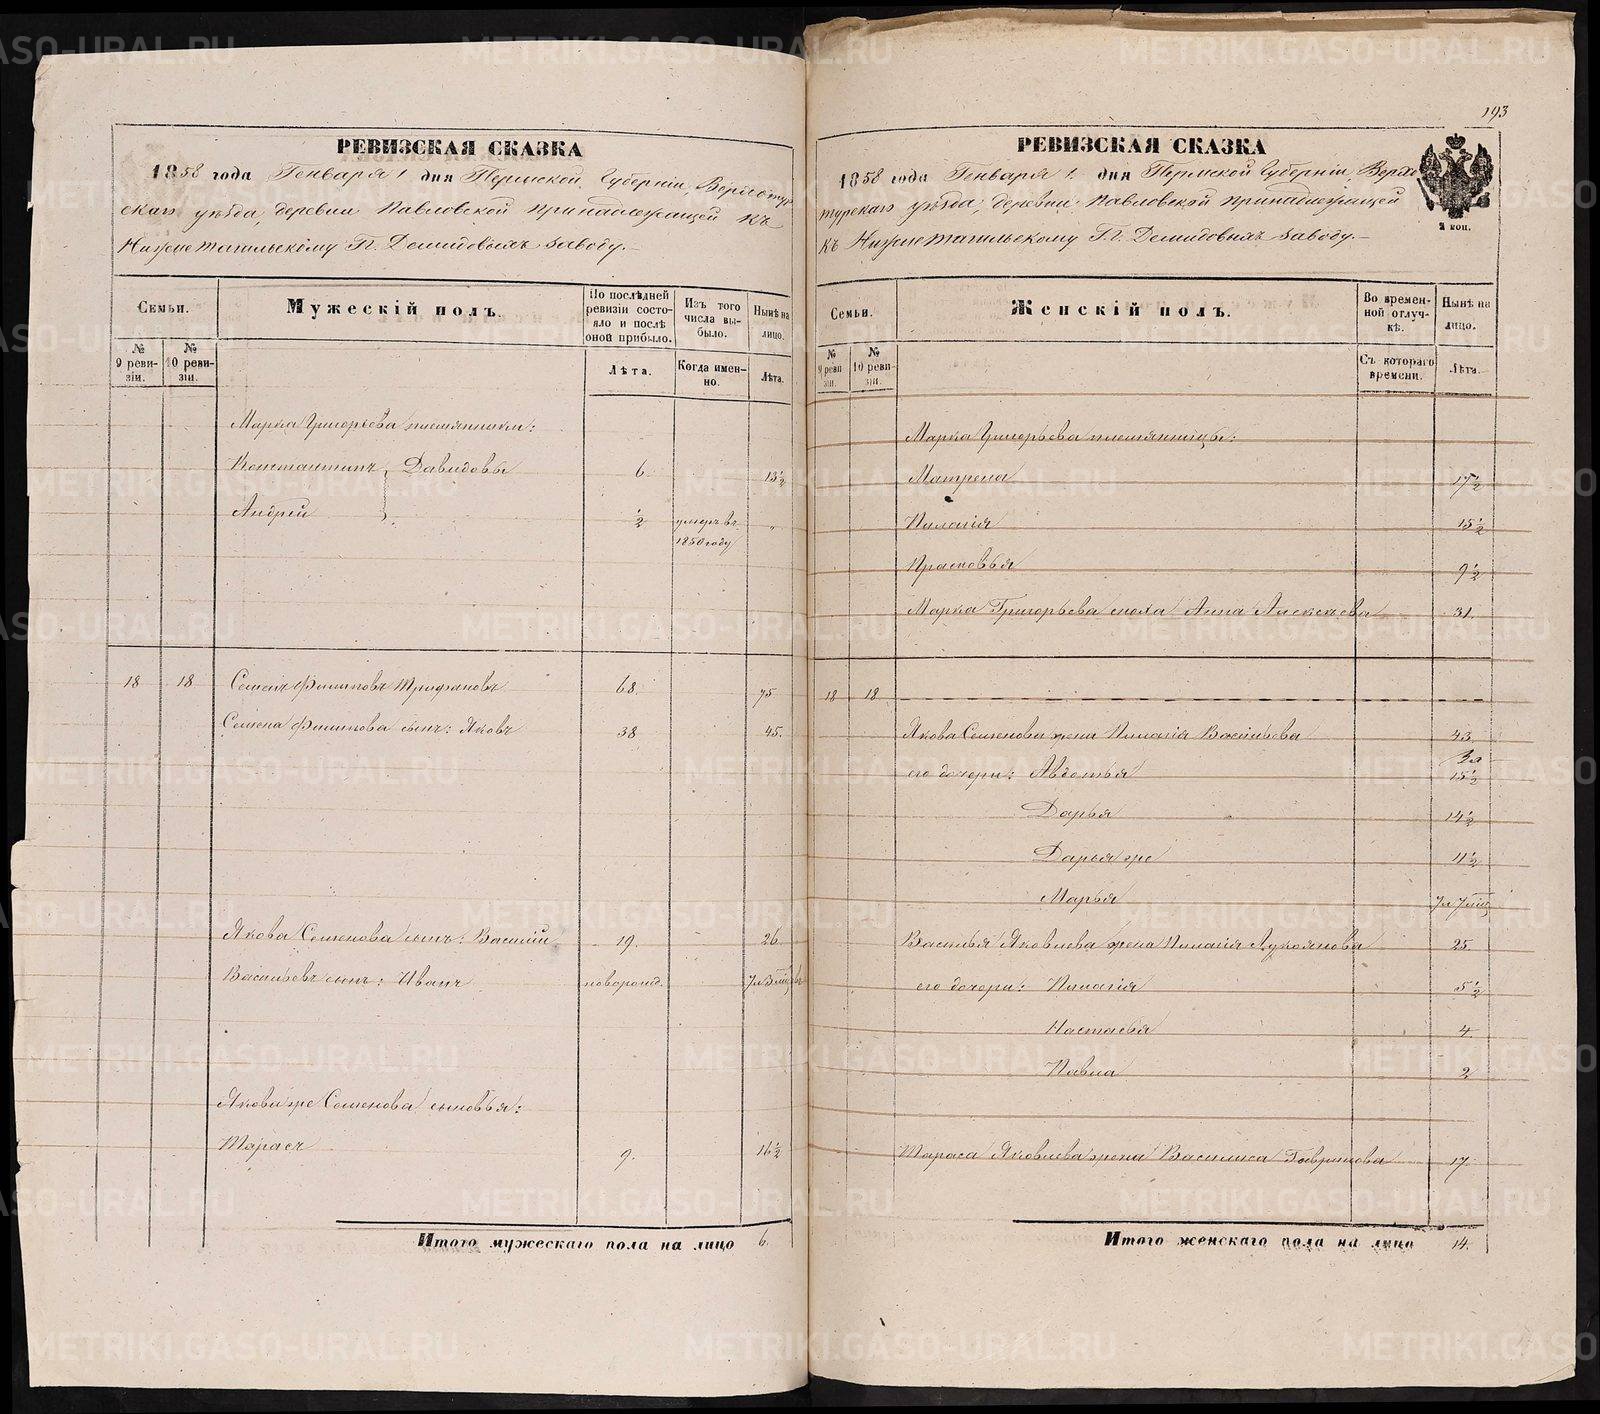 РЕВИЗСКАЯ СКАЗКА
1858 года Генваря 1 дня Пермской Губерніи, Верхотур
скаго уѣзда, деревни Павловской принадлежащей къ
Нижнетагильскому Г.г. Демидовыхъ заводу.
Семьи.
Мужескій полъ.
По послѣдней ревизіи состояло и послѣ оной прибыло.
Изъ того числа выбыло.
Нынѣ на лицо.
№ 9 ревизіи.
№ 10 ревизіи.
Лѣта.
Когда именно.
Лѣта.
Марка Григорьева племянники:
Константинъ Давидовы 6 13½
Андрей ½ умеръ въ „
1850 году
18 18 Семенъ Филиповъ Трифановъ 68. 75
Семена Филипова сынъ: Яковъ 38 45.
Якова Семенова сынъ: Василій 19. 26
Васильевъ сынъ: Иванъ новорожд.
Якова же Семенова сыновья:
Тарасъ 9. 16½
Итого мужескаго пола на лицо 6.
193
РЕВИЗСКАЯ СКАЗКА
1858 года Генваря 1. дня Пермской Губерніи, Верхо
турскаго уѣзда, деревни Павловской принадлежащей
къ Нижнетагильскому Г.г. Демидовыхъ заводу.
2 коп.
Семьи.
Женскій полъ.
Во временной отлучкѣ.
Нынѣ на лицо.
№ 9 ревизіи.
№ 10 ревизіи.
Съ котораго времени.
Лѣта.
Марка Григорьева племянницы:
Матрена 17½
Пилагія 15½
Прасковья 9½
Марка Григорьева сноха Анна Алексѣева 31.
18 18
Якова Семенова жена Пилагія Васильева 43
его дочери: Авдотья 15½
Дарья 14½
Дарья же 11½
Марья
Василья Яковлева жена Пилагія Лукоянова 25
его дочери: Пилагія 5½
Настасья 4
Павла 2
Тараса Яковлева жена Василиса Гаврилова 17
Итого женскаго пола на лицо 14.
METRIKI.GASO-URAL.RU